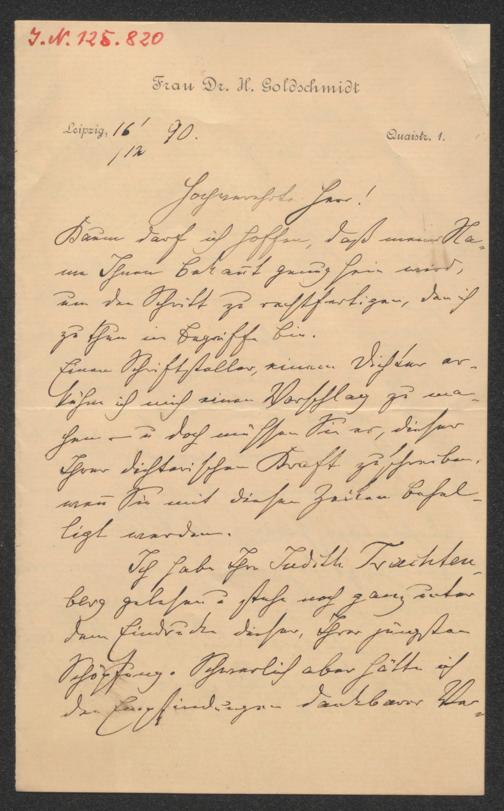 J. N. 125.820
Frau Dr. H. Goldschmidt
Leipzig, 16/
/12 90.
Quaistr. 1.
Hochverehrter Herr!
Kaum darf ich hoffen, daß mein Na-
me Ihnen bekannt genug sein wird,
um den Schritt zu rechtfertigen, den ich
zu thun im Begriffe bin.
Einem Schriftsteller, einem Dichter er-
kühn ich mich einen Vorschlag zu ma-
chen – u doch müssen Sie es, dieser
Ihrer dichterischen Kraft zuschreiben,
wenn Sie mit diesen Zeilen behel-
ligt werden.
Ich habe Ihre Judith Trachten-
berg gelesen u stehe noch ganz unter
dem Eindrucke dieser, Ihrer jüngsten
Schöpfung. Schwerlich aber hätte ich
den Empfindungen dankbarer Ver-